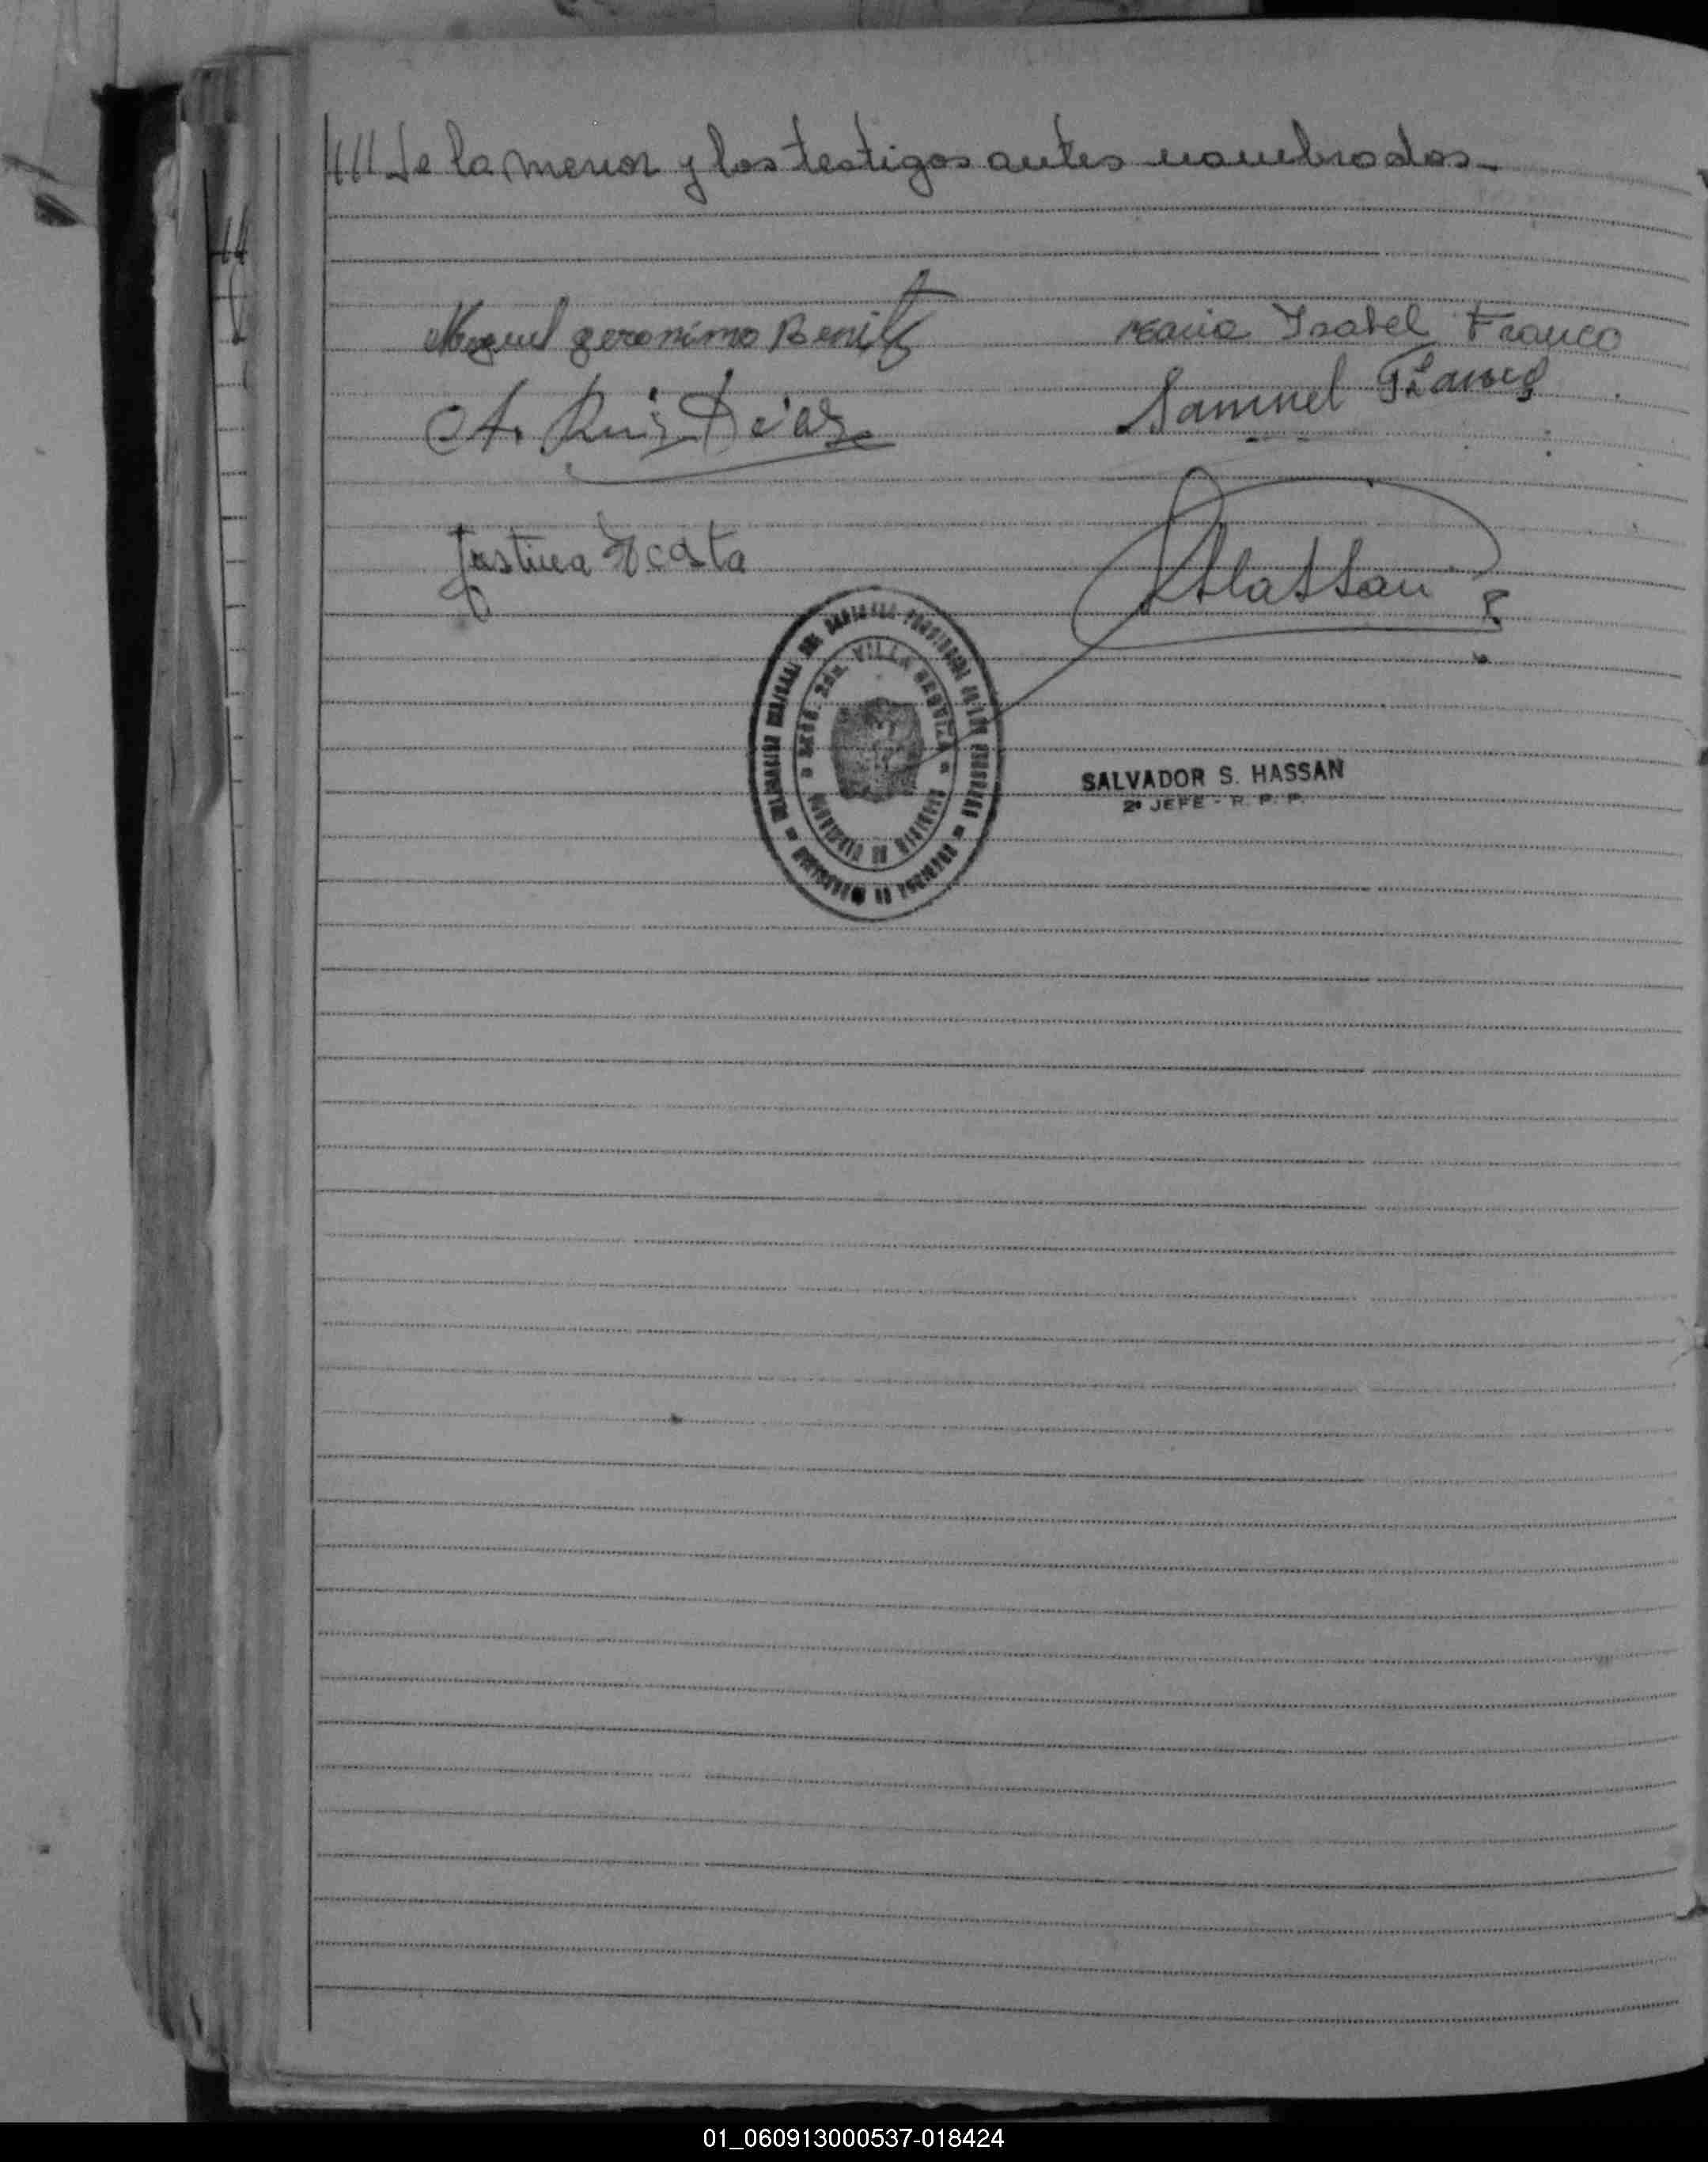 //// de la menor y los testigos antes nombrados.-
Miguel geronimo Benitez
Maria Isabel Franco
A. Ruiz Diaz
Samuel Franco
Justina Acosta
SHassan
VILLA
SALVADOR S. HASSAN
2º JEFE - R. P. P.
01_060913000537-018424